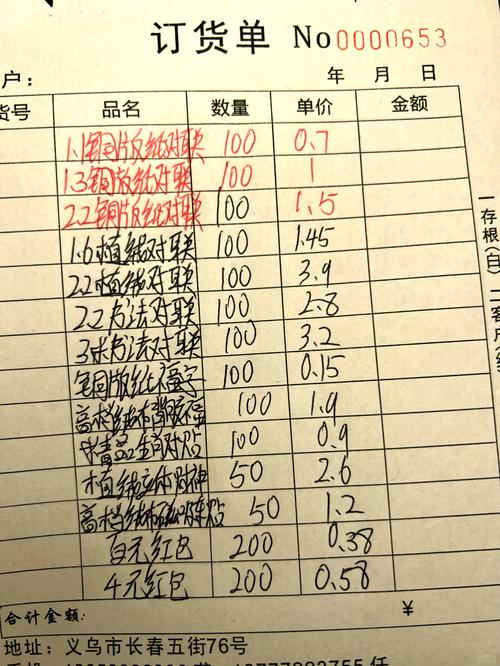 订货单 No 0000653
户： 年 月 日
货号 品名 数量 单价 金额
1.1铜版纸对联 100 0.7
1.3铜版纸对联 100 1
2.2铜版纸对联 100 1.5
1.6植绒对联 100 1.45
2.2植绒对联 100 3.9
2.2书法对联 100 2.8
3米书法对联 100 3.2
铜版纸福字 100 0.15
高档绒布背胶福 100 1.9
精品生肖对贴 100 0.9
植绒立体财神 50 2.6
高档绒布磁吸 贴 50 1.2
百元红包 200 0.38
4元红包 200 0.58
合计金额： ￥
地址：义乌市长春五街76号
一存根(白) 二客户(红